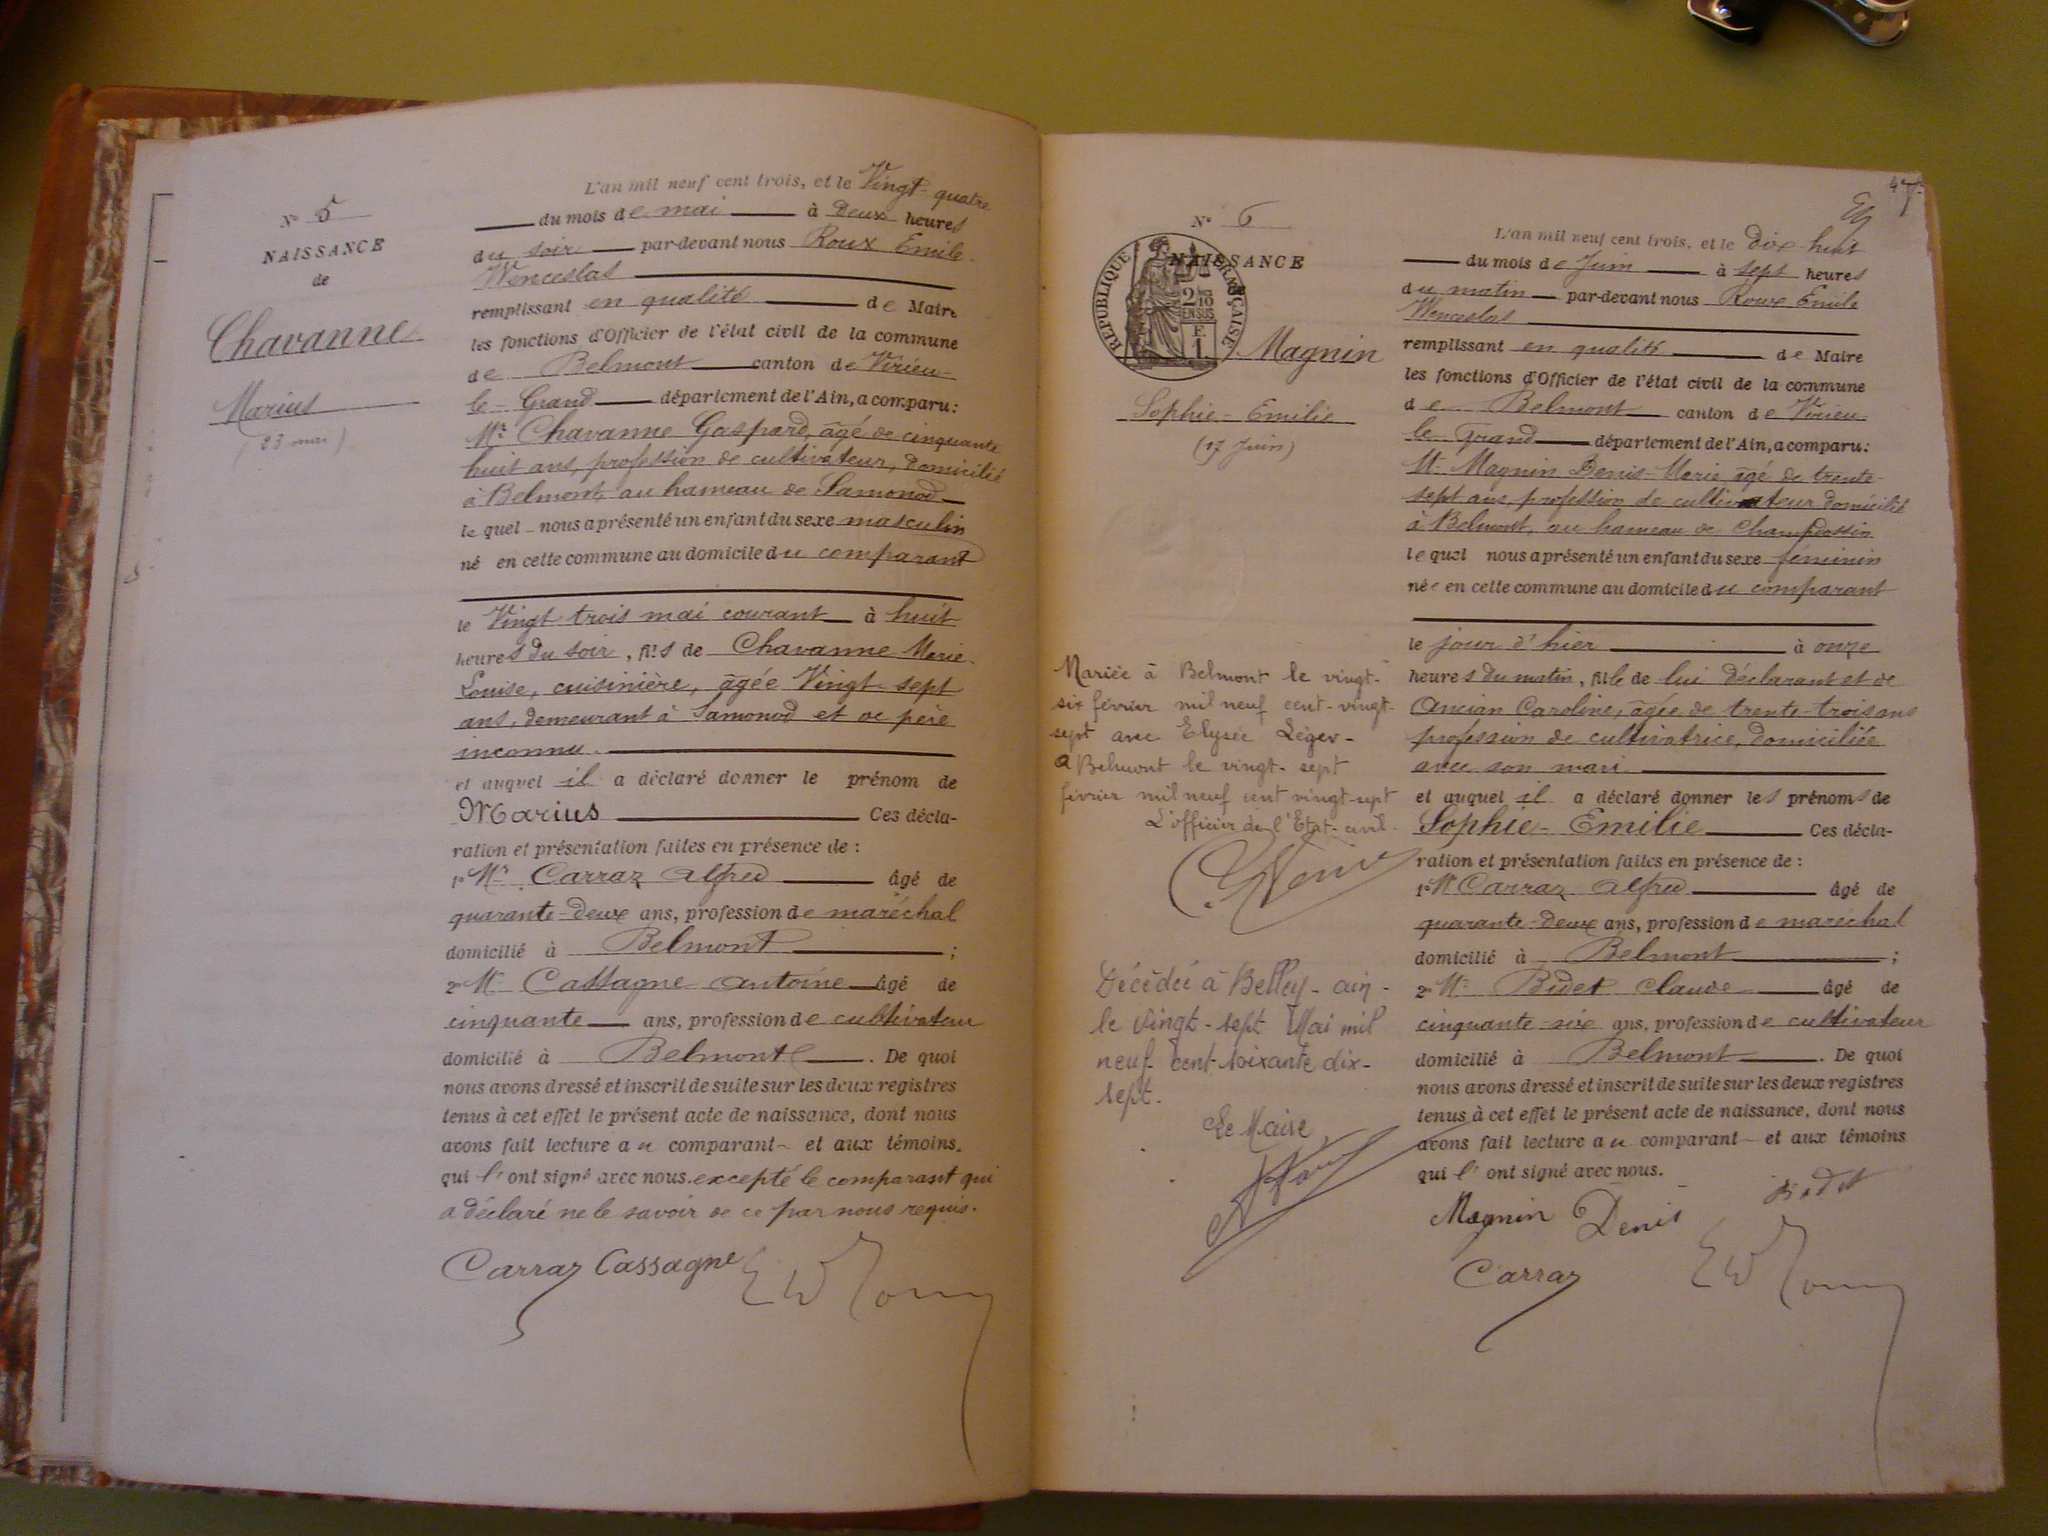 N° 5
NAISSANCE
de
Chavanne
Marius
(23 mai)
L'an mil neuf cent trois, et le Vingt-quatre
du mois de mai à Deux heures
du soir par-devant nous Roux Emile
Wenceslas
remplissant en qualité de Maire
les fonctions d'Officier de l'état civil de la commune
de Belmont canton de Virieu
le Grand département de l'Ain, a comparu:
Mr Chavanne Gaspard, âgé de cinquante
huit ans, profession de cultivateur, domicilié
à Belmont, au hameau de Samonod
le quel nous a présenté un enfant du sexe masculin
né en cette commune au domicile du comparant
le Vingt trois mai courant à huit
heures du soir, fils de Chavanne Marie
Louise, cuisinière, âgée Vingt-sept
ans, demeurant à Samonod et de père
inconnu.
et auquel il a déclaré donner le prénom de
Marius Ces décla-
ration et présentation faites en présence de :
1° Mr Carraz Alfred âgé de
quarante-deux ans, profession de maréchal
domicilié à Belmont ;
2° Mr Cassagne Antoine âgé de
cinquante ans, profession de cultivateur
domicilié à Belmont . De quoi
nous avons dressé et inscrit de suite sur les deux registres
tenus à cet effet le présent acte de naissance, dont nous
avons fait lecture au comparant et aux témoins.
qui l'ont signé avec nous. excepté le comparant qui
a déclaré ne le savoir de ce par nous requis.
Carraz Cassagne
47
N° 6
NAISSANCE
RÉPUBLIQUE FRANÇAISE
2 10
EN SUS
Magnin
Sophie-Emilie
(17 Juin)
L'an mil neuf cent trois, et le Dix-huit
du mois de Juin à sept heures
du matin par-devant nous Roux Emile
Wenceslas
remplissant en qualité de Maire
les fonctions d'Officier de l'état civil de la commune
de Belmont canton de Virieu
le Grand département de l'Ain, a comparu:
Mr Magnin Denis-Marie âgé de trente-
sept ans, profession de cultivateur domicilié
à Belmont, au hameau de Champdossin
le quel nous a présenté un enfant du sexe féminin
née en cette commune au domicile du comparant
le jour d'hier à onze
heures du matin, fille de lui Déclarant et de
Ancian Caroline, âgée de trente-trois ans
profession de cultivatrice, domiciliée
avec son mari
et auquel il a déclaré donner les prénoms de
Sophie-Emilie Ces décla-
ration et présentation faites en présence de :
1° Mr Carraz Alfred âgé de
quarante-deux ans, profession de maréchal
domicilié à Belmont ;
2° Mr Bidet Claude âgé de
cinquante-six ans, profession de cultivateur
domicilié à Belmont . De quoi
nous avons dressé et inscrit de suite sur les deux registres
tenus à cet effet le présent acte de naissance, dont nous
avons fait lecture au comparant et aux témoins
qui l'ont signé avec nous.
Magnin Denis Bidet
Carraz
Mariée à Belmont le vingt-
six février mil neuf cent-vingt-
sept avec Elysée Léger-
A Belmont le vingt-sept
février mil neuf cent vingt-sept
L'officier de l'Etat-civil.
Décédée à Belley-ain-
le vingt-sept Mai mil
neuf cent soixante dix-
sept.
Le Maire,